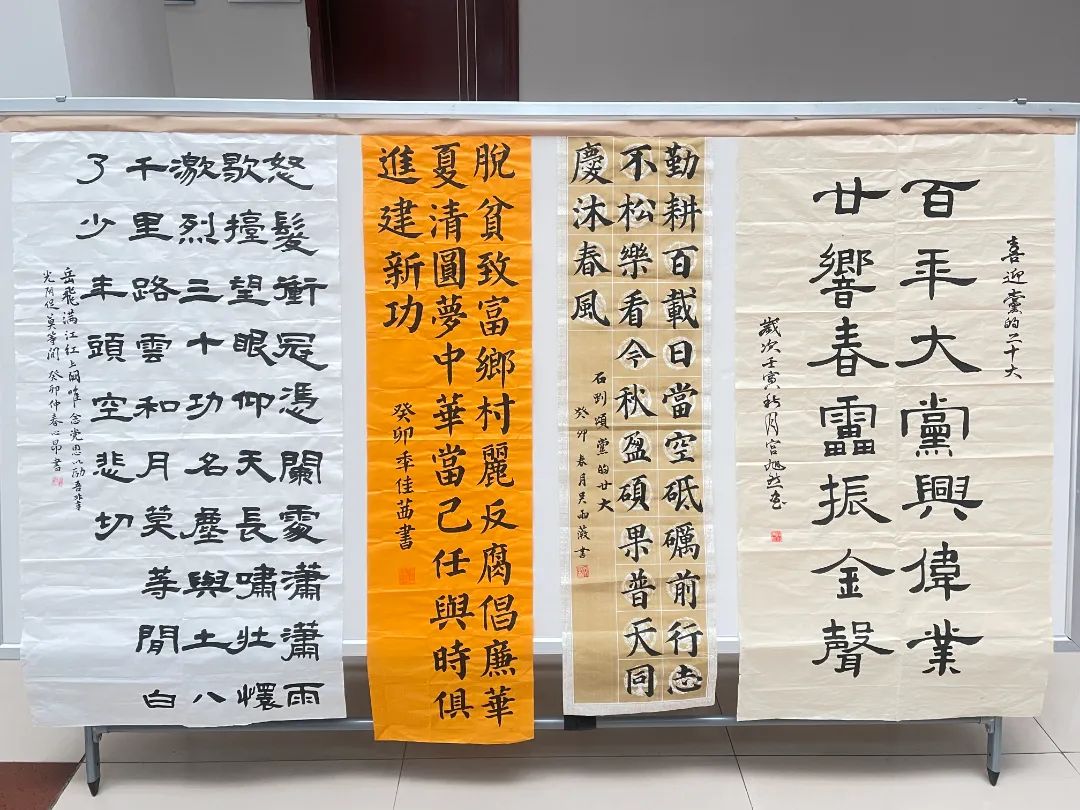 喜迎黨的二十大
百年大黨興偉業
廿響春靁振金聲
歲次壬寅秋月官旭然書
勤耕百載日當空砥礪前行志
不松樂看今秋盈碩果普天同
慶沐春風
石刻頌黨的廿大
癸卯春月吴雨薇書
脫貧致富鄉村麗反腐倡廉華
夏清圓夢中華當己任與時俱
進建新功
癸卯季佳茜書
怒髮衝冠憑闌處瀟瀟雨
歇擡望眼仰天長嘯壯懷
激烈三十功名塵與土八
千里路雲和月莫等閒白
了少年頭空悲切
岳飛滿江紅上闋唯念党恩以励吾輩
光阴促莫等闲 癸卯仲春心昂書